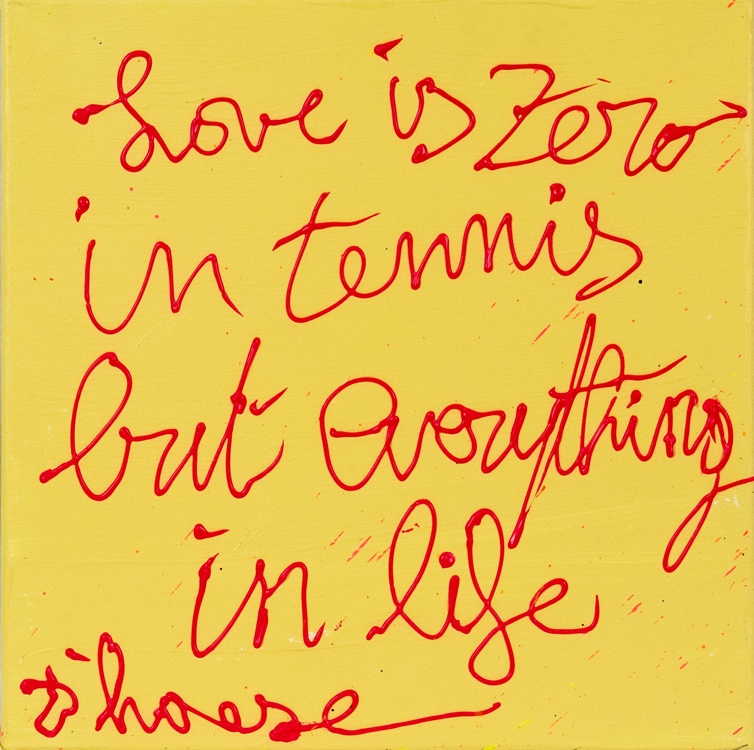 Love is Zero
in tennis
but Everything
in life
D'haese